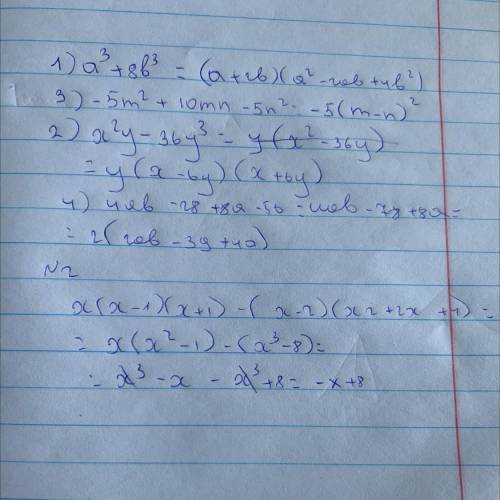 1) a³ + 8b³ = (a+2b)(a² - 2ab + 4b²)
3) -5m² + 10mn - 5n² = -5(m-n)²
2) x²y - 36y³ = y(x² - 36y)
= y(x - 6y)(x + 6y)
4) 4ab - 28 + 8a - 56 = 4ab - + 8a =
= 2(2ab - + 4a)
N2
x(x-1)(x+1) - (x-2)(x2 + 2x + ) =
= x(x² - 1) - (x³ - 8) =
= x³ - x - x³ + 8 = -x + 8